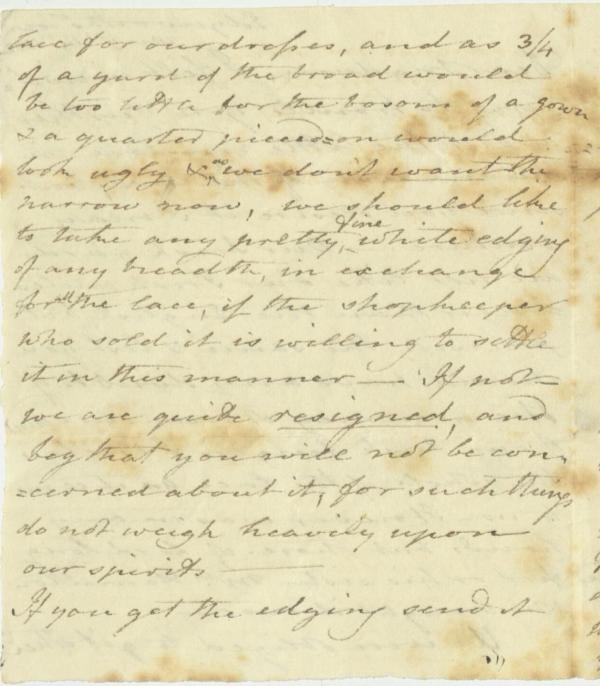 lace for our dresses, and as 3/4
of a yard of the broad would
be too little for the bosom of a gown
& a quarter pieced=on would
look ugly & as we don't want the
narrow now, we should like
to take any pretty, fine white edging
of any breadth, in exchange
for all the lace, if the shopkeeper
who sold it is willing to settle
it in this manner — If not=
we are quite resigned, and
beg that you will not be con=
=cerned about it, for such things
do not weigh heavily upon
our spirits —
If you get the edging send it